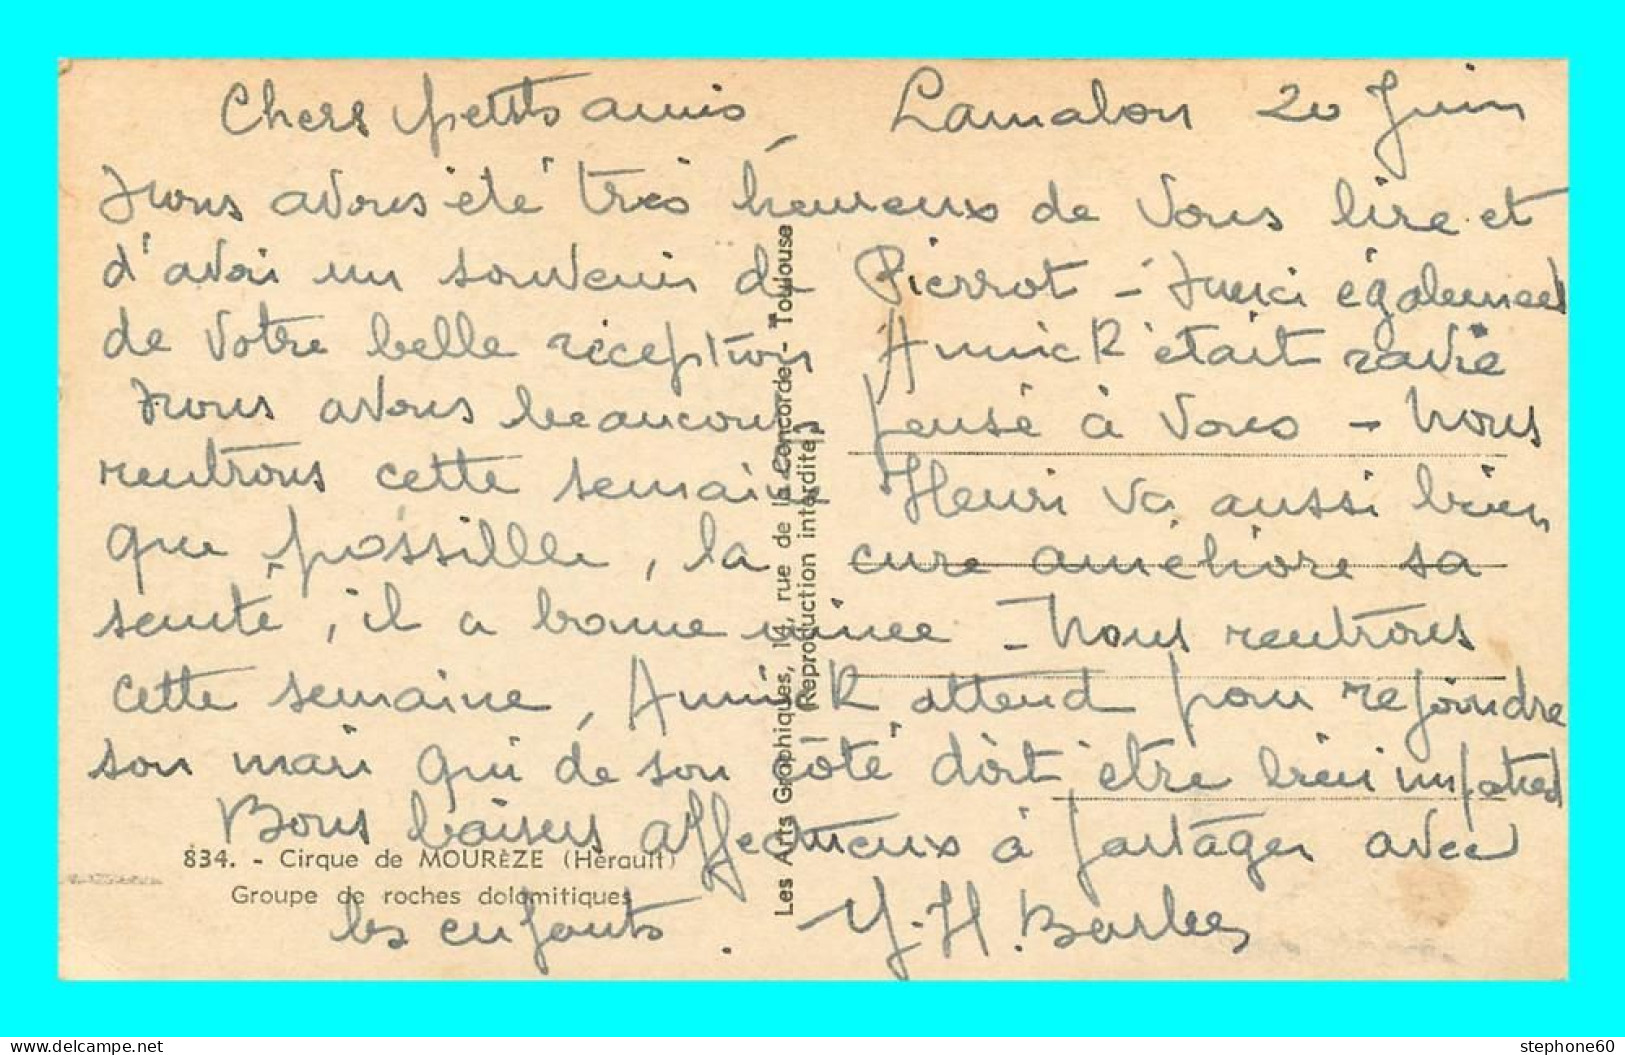 Chers petits amis, Lamalou 20 Juin
Nous avons été très heureux de vous lire et
d'avoir un souvenir de Pierrot - Merci également
de votre belle réception Annick était ravie
Nous avons beaucoup pensé à vous - Nous
rentrons cette semaine Henri va aussi bien
que possible, la cure améliore sa
santé, il a bonne mine - Nous rentrons
cette semaine, Annick attend pour rejoindre
son mari qui de son côté doit être bien impatient
Bons baisers affectueux à partager avec
les enfants. Y. H. Barbes
834. - Cirque de MOURÈZE (Hérault)
Groupe de roches dolomitiques
Les Arts Graphiques, 14, rue de la Concorde - Toulouse
(Reproduction interdite)
www.delcampe.net
stephone60